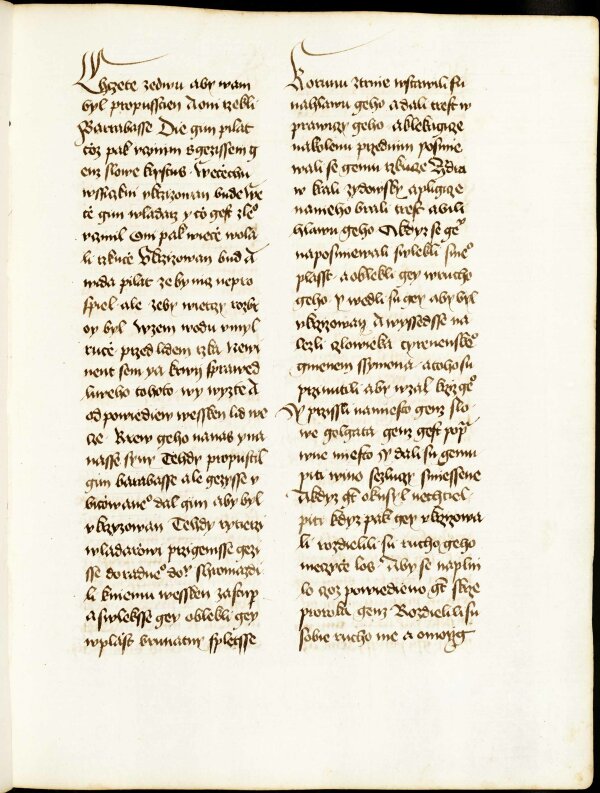 Chczete zedwu aby wam
byl propusstien A oni rzekli
Barrabasse Die gim pilat
coz pak vczinim s gezissem g
enz slowe krystus Wecechu
wssickni vkrzizowan bude We
ce gim wladarz y co gest zleº
vczinil Oni pak wiece wola
li rzkuce Vkrzizowan bud A
wida pilat ze by nicz nepro
spiel ale zeby wietczy rozbr
oy byl Wzem wodu vmyl
ruce przed lidem rzka Newi
nent sem ya krwy sprawed
liweho tohoto wy wyzte A
odpowiediew wessken lid we
cze Krew geho na nas y na
nasse syny Tehdy propustil
gim barabasse ale gezysse v
biczowaneº dal gim aby byl
vkrzyzowan Tehdy rytierzi
wladarowi przigemsse gezi
sse do radneº doº Schromazdi
li kniemu wessken zastup
a swleksse gey oblekli gey
w plasst brunatny spletsse
Korunu z trnie wstawili su
na hlawu geho a dali trest w
prawiczy geho a klekagicze
na kolenu przed nim posmie
wali se gemu rzkucze Zdra
w krali zydowsky a pligicze
na neho brali trest a bili
hlawu geho A kdyz se geº
naposmiewali swlekli sneº
plasst a oblekli gey w rucho
geho y wedli su gey aby byl
vkrzizowan A wyssedsse na
lezli czlowieka cyrenenskeº
gmenem ssymona a toho su
przinutili aby wzal krziz geº
Y przissli na miesto genz slo
we golgata genz gest popra
wne miesto y dali su gemu
piti wino se zluczy smiessene
A kdyz gt okusyl nechtiel
piti kdyz pak gey vkrzizowa
li rozdielili su rucho geho
mecyce los Aby se naplni
lo czoz powiedieno gt skrze
proroka genz Rozdielili su
sobie rucho me a o mog